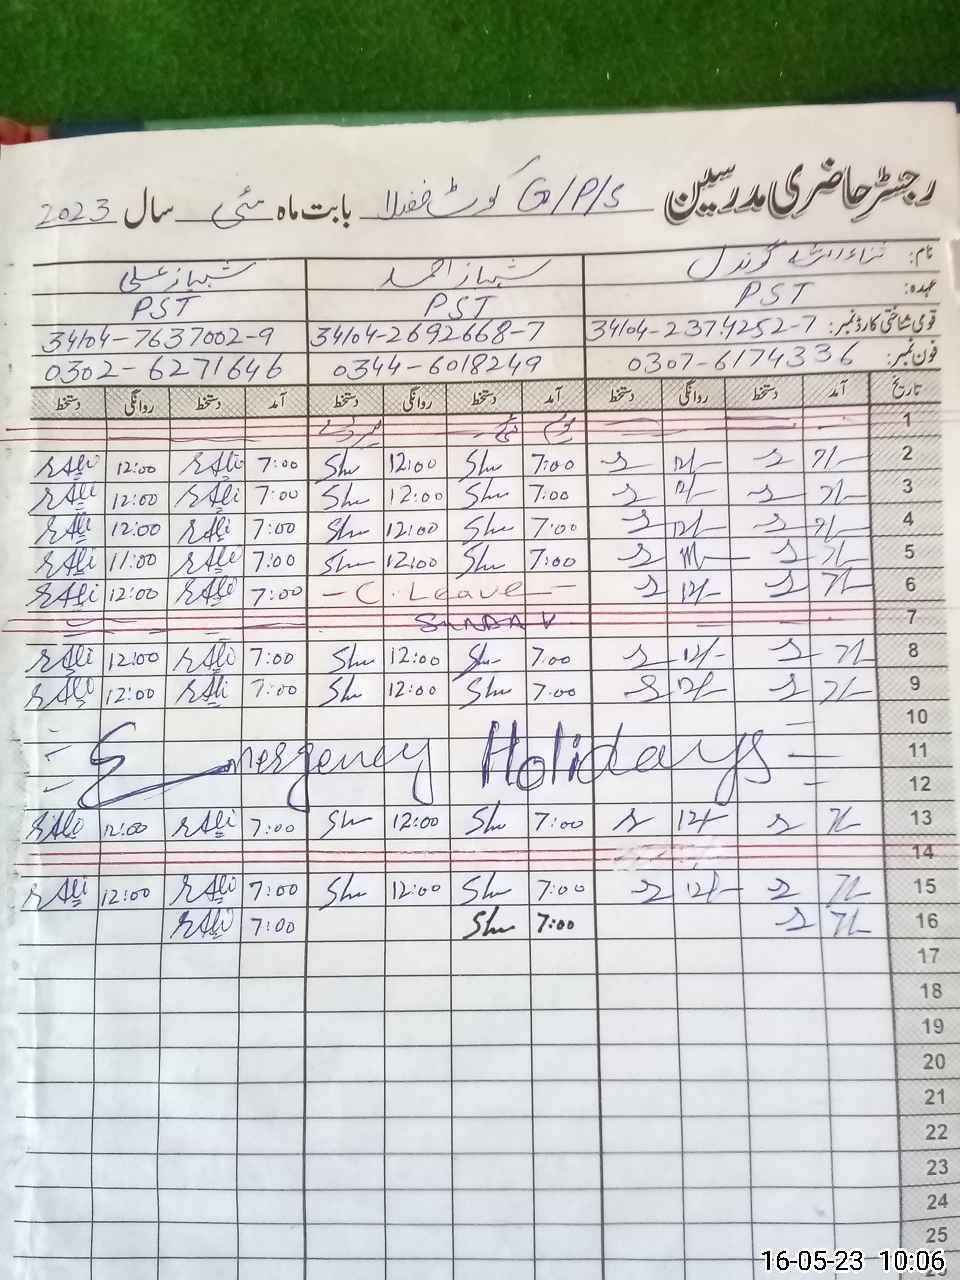 رجسٹر حاضری مدرسین G/P/S کوٹ بابت ماہ مئی سال 2023
نام: گوندل شہباز احمد شہباز علی
عہدہ: PST PST PST
قومی شناختی کارڈ نمبر: 34104-2374252-7 34104-2692668-7 34104-7637002-9
فون نمبر: 0307-6174336 0344-6018249 0302-6271646
تاریخ آمد دستخط روانگی دستخط آمد دستخط روانگی دستخط آمد دستخط روانگی دستخط
1 یوم مئی
2 7/- 12/- 7:00 Sh 12:00 Sh 7:00 RAli 12:00 RAli
3 7/- 12/- 7:00 Sh 12:00 Sh 7:00 RAli 12:00 RAli
4 7/- 12/- 7:00 Sh 12:00 Sh 7:00 RAli 12:00 RAli
5 7/- 7:00 Sh 12:00 Sh 7:00 RAli 11:00 RAli
6 7/- 12/- - C. Leave - 7:00 RAli 12:00 RAli
7 SUNDAY
8 7/- 12/- 7:00 Sh 12:00 Sh 7:00 RAli 12:00 RAli
9 7/- 12/- 7:00 Sh 12:00 Sh 7:00 RAli 12:00 RAli
10
11 Emergency Holidays
12
13 7/- 12/- 7:00 Sh 12:00 Sh 7:00 RAli 12:00 RAli
14
15 7/- 12/- 7:00 Sh 12:00 Sh 7:00 RAli 12:00 RAli
16 7/- 7:00 Sh 7:00 RAli
17
18
19
20
21
22
23
24
25
16-05-23 10:06